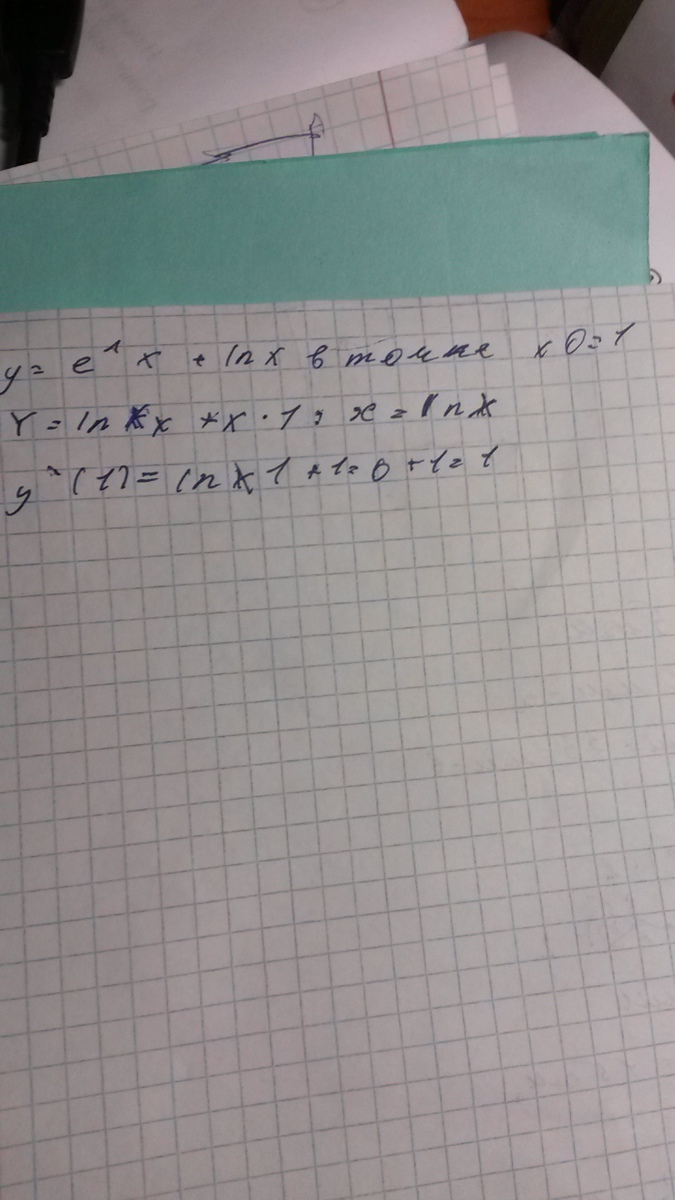 y = e^1 x + ln x в точке x0=1
Y = ln x + x · 1 : x = ln x
y' (1) = ln 1 + 1 = 0 + 1 = 1